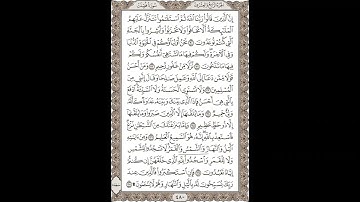 سورة فصلت
الجزء الرابع والعشرون
إِنَّ ٱلَّذِينَ قَالُوا۟ رَبُّنَا ٱللَّهُ ثُمَّ ٱسْتَقَـٰمُوا۟ تَتَنَزَّلُ عَلَيْهِمُ
ٱلْمَلَـٰٓئِكَةُ أَلَّا تَخَافُوا۟ وَلَا تَحْزَنُوا۟ وَأَبْشِرُوا۟ بِٱلْجَنَّةِ
ٱلَّتِى كُنتُمْ تُوعَدُونَ ٣٠ نَحْنُ أَوْلِيَآؤُكُمْ فِى ٱلْحَيَوٰةِ ٱلدُّنْيَا
وَفِى ٱلْـَٔاخِرَةِ ۖ وَلَكُمْ فِيهَا مَا تَشْتَهِىٓ أَنفُسُكُمْ وَلَكُمْ
فِيهَا مَا تَدَّعُونَ ٣١ نُزُلًا مِّنْ غَفُورٍ رَّحِيمٍ ٣٢ وَمَنْ أَحْسَنُ
قَوْلًا مِّمَّن دَعَآ إِلَى ٱللَّهِ وَعَمِلَ صَـٰلِحًا وَقَالَ إِنَّنِى مِنَ
ٱلْمُسْلِمِينَ ٣٣ وَلَا تَسْتَوِى ٱلْحَسَنَةُ وَلَا ٱلسَّيِّئَةُ ۚ ٱدْفَعْ
بِٱلَّتِى هِىَ أَحْسَنُ فَإِذَا ٱلَّذِى بَيْنَكَ وَبَيْنَهُۥ عَدَٰوَةٌ كَأَنَّهُۥ
وَلِىٌّ حَمِيمٌ ٣٤ وَمَا يُلَقَّىٰهَآ إِلَّا ٱلَّذِينَ صَبَرُوا۟ وَمَا يُلَقَّىٰهَآ
إِلَّا ذُو حَظٍّ عَظِيمٍ ٣٥ وَإِمَّا يَنزَغَنَّكَ مِنَ ٱلشَّيْطَـٰنِ نَزْغٌ
فَٱسْتَعِذْ بِٱللَّهِ ۖ إِنَّهُۥ هُوَ ٱلسَّمِيعُ ٱلْعَلِيمُ ٣٦ وَمِنْ ءَايَـٰتِهِ
ٱلَّيْلُ وَٱلنَّهَارُ وَٱلشَّمْسُ وَٱلْقَمَرُ ۚ لَا تَسْجُدُوا۟ لِلشَّمْسِ
وَلَا لِلْقَمَرِ وَٱسْجُدُوا۟ لِلَّهِ ٱلَّذِى خَلَقَهُنَّ إِن كُنتُمْ
إِيَّاهُ تَعْبُدُونَ ٣٧ فَإِنِ ٱسْتَكْبَرُوا۟ فَٱلَّذِينَ عِندَ
رَبِّكَ يُسَبِّحُونَ لَهُۥ بِٱلَّيْلِ وَٱلنَّهَارِ وَهُمْ لَا يَسْـَٔمُونَ ۩ ٣٨
٤٨٠